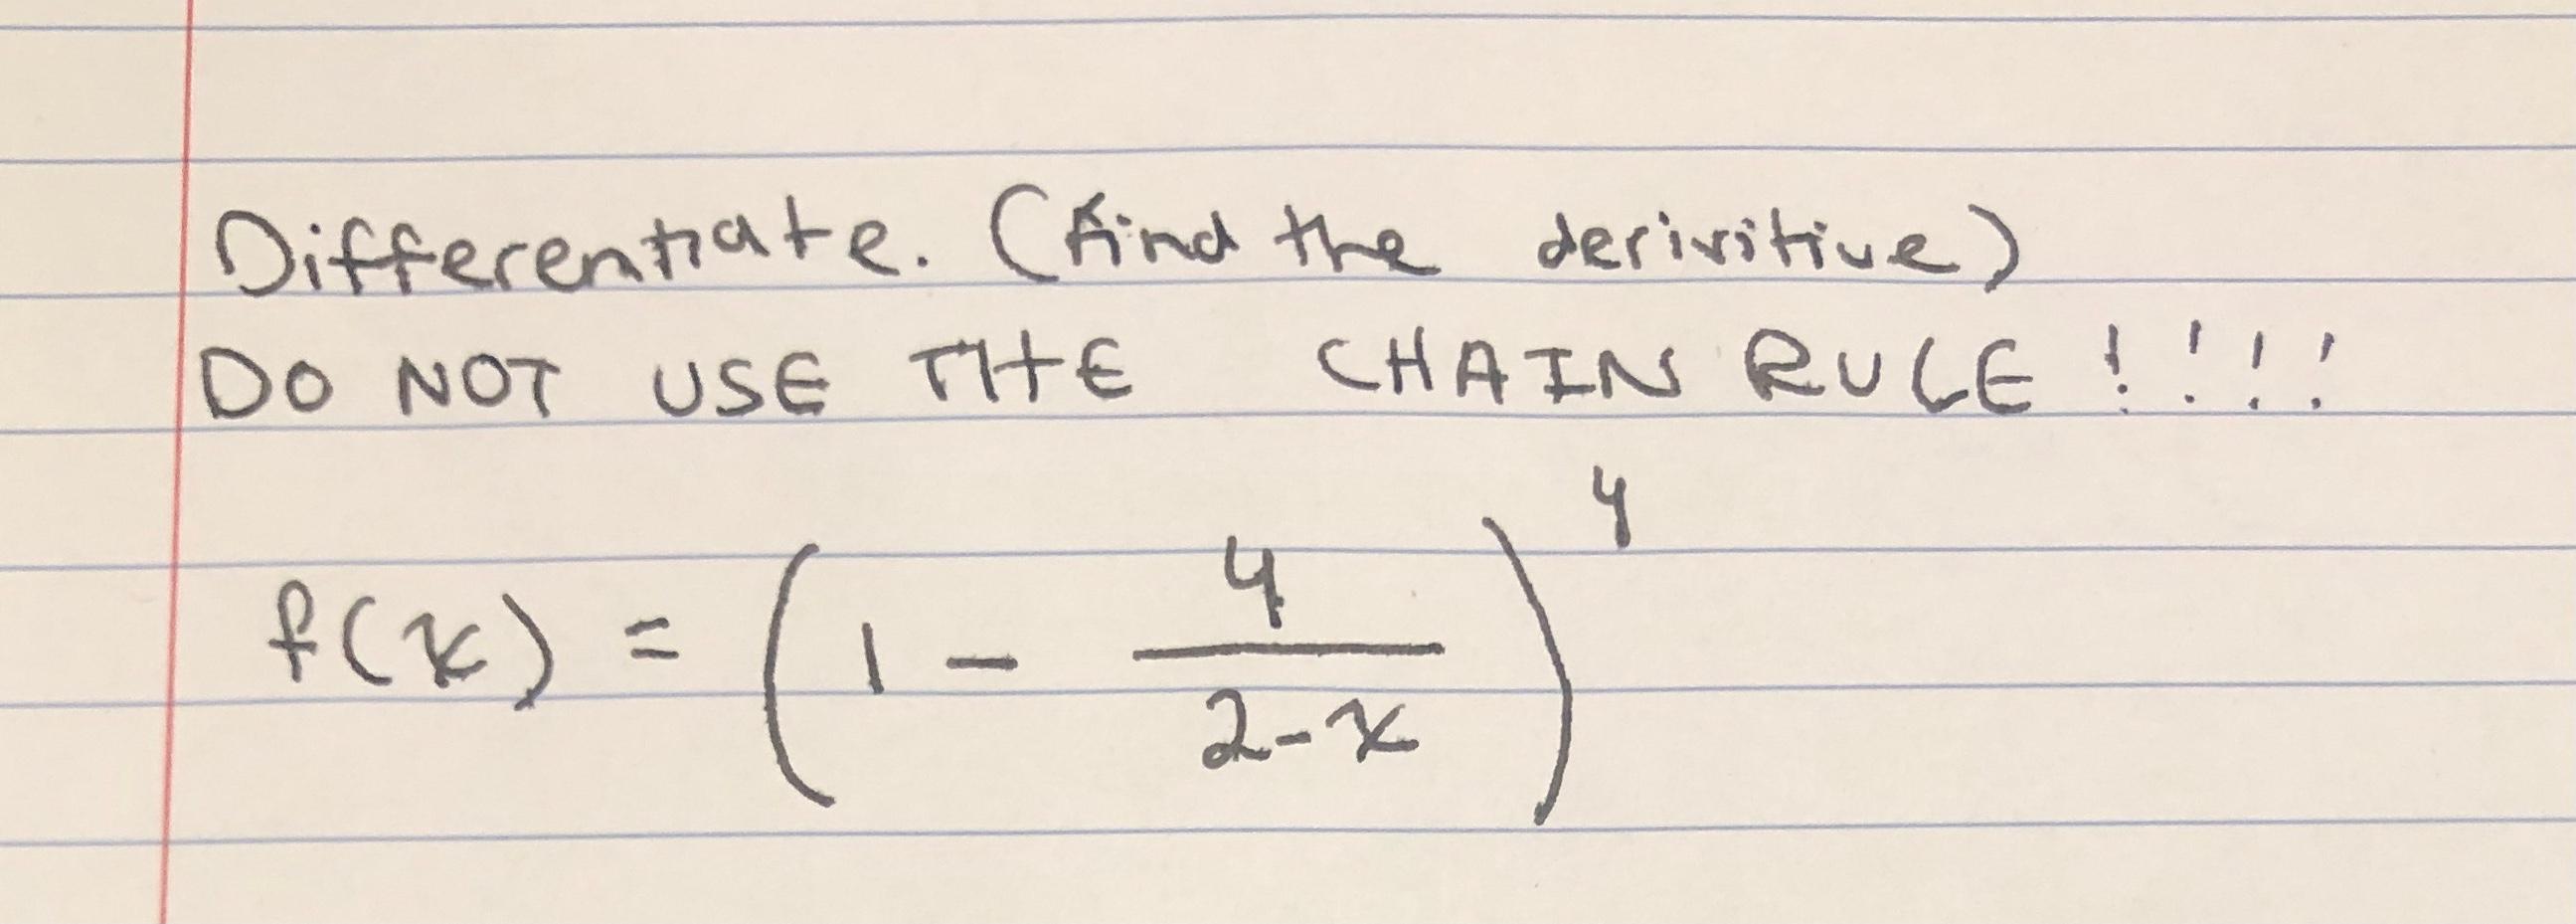 Differentiate. (find the derivitive)
DO NOT USE THE CHAIN RULE !!!!
f(x) = (1 - 4/(2-x))^4